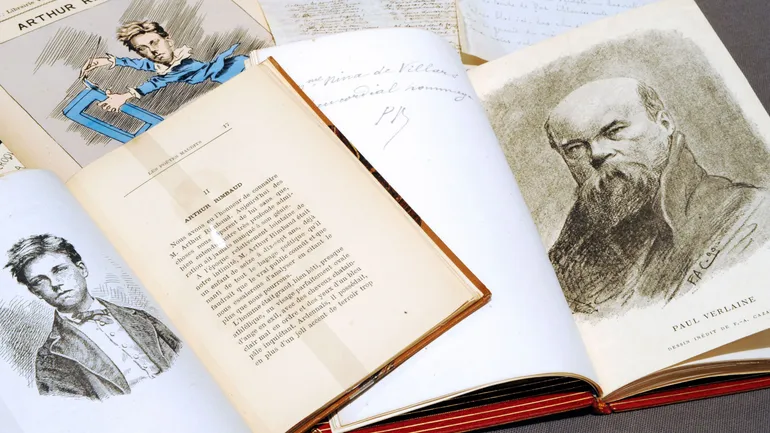 Librairie V
ARTHUR R
LES POÈTES MAUDITS
II
ARTHUR RIMBAUD
Nous avons eu l'honneur de connaître
M. Arthur Rimbaud. Aujourd'hui des
choses nous séparent de lui sans que,
bien entendu, notre très profonde admi-
ration ait jamais manqué à son génie.
A l'époque relativement lointaine de
notre intimité, M. Arthur Rimbaud était
un enfant de seize à dix-sept ans, déjà
nanti de tout le bagage poétique qu'il
faudrait que le vrai public connût et que
nous essaierons d'analyser en citant le
plus que nous pourrons.
L'homme était grand, bien bâti, presque
athlétique, au visage parfaitement ovale
d'ange en exil, avec des cheveux châtain-
clair mal en ordre et des yeux d'un bleu
pâle inquiétant. Ardennais, il possédait,
en plus d'un joli accent de terroir trop
Nina de Villars
cordial hommage
PAUL VERLAINE
DESSIN INÉDIT DE F.-A. CAZA